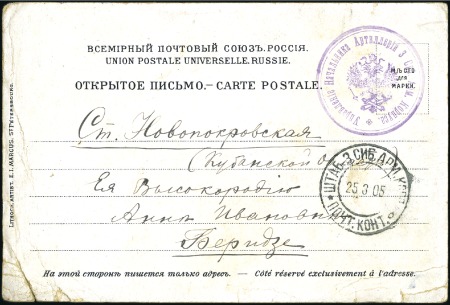 ВСЕМІРНЫЙ ПОЧТОВЫЙ СОЮЗЪ. РОССІЯ.
UNION POSTALE UNIVERSELLE. RUSSIE.
ОТКРЫТОЕ ПИСЬМО. — CARTE POSTALE.
МѢСТО
ДЛЯ
МАРКИ.
Управленіе Начальника Артиллеріи 3
Ст. Новопокровская
Кубанской
Ея Высокородію
Анне Ивановне
Беридзе
ШТАБ. 3 СИБ. АРМ. КОРП.
25 3 05
ПОЧТ. КОНТ.
На этой сторонѣ пишется только адресъ. — Côté réservé exclusivement à l'adresse.
LITHOGR. ARTIST. E.I. MARCUS, ST PETERSBOURG.